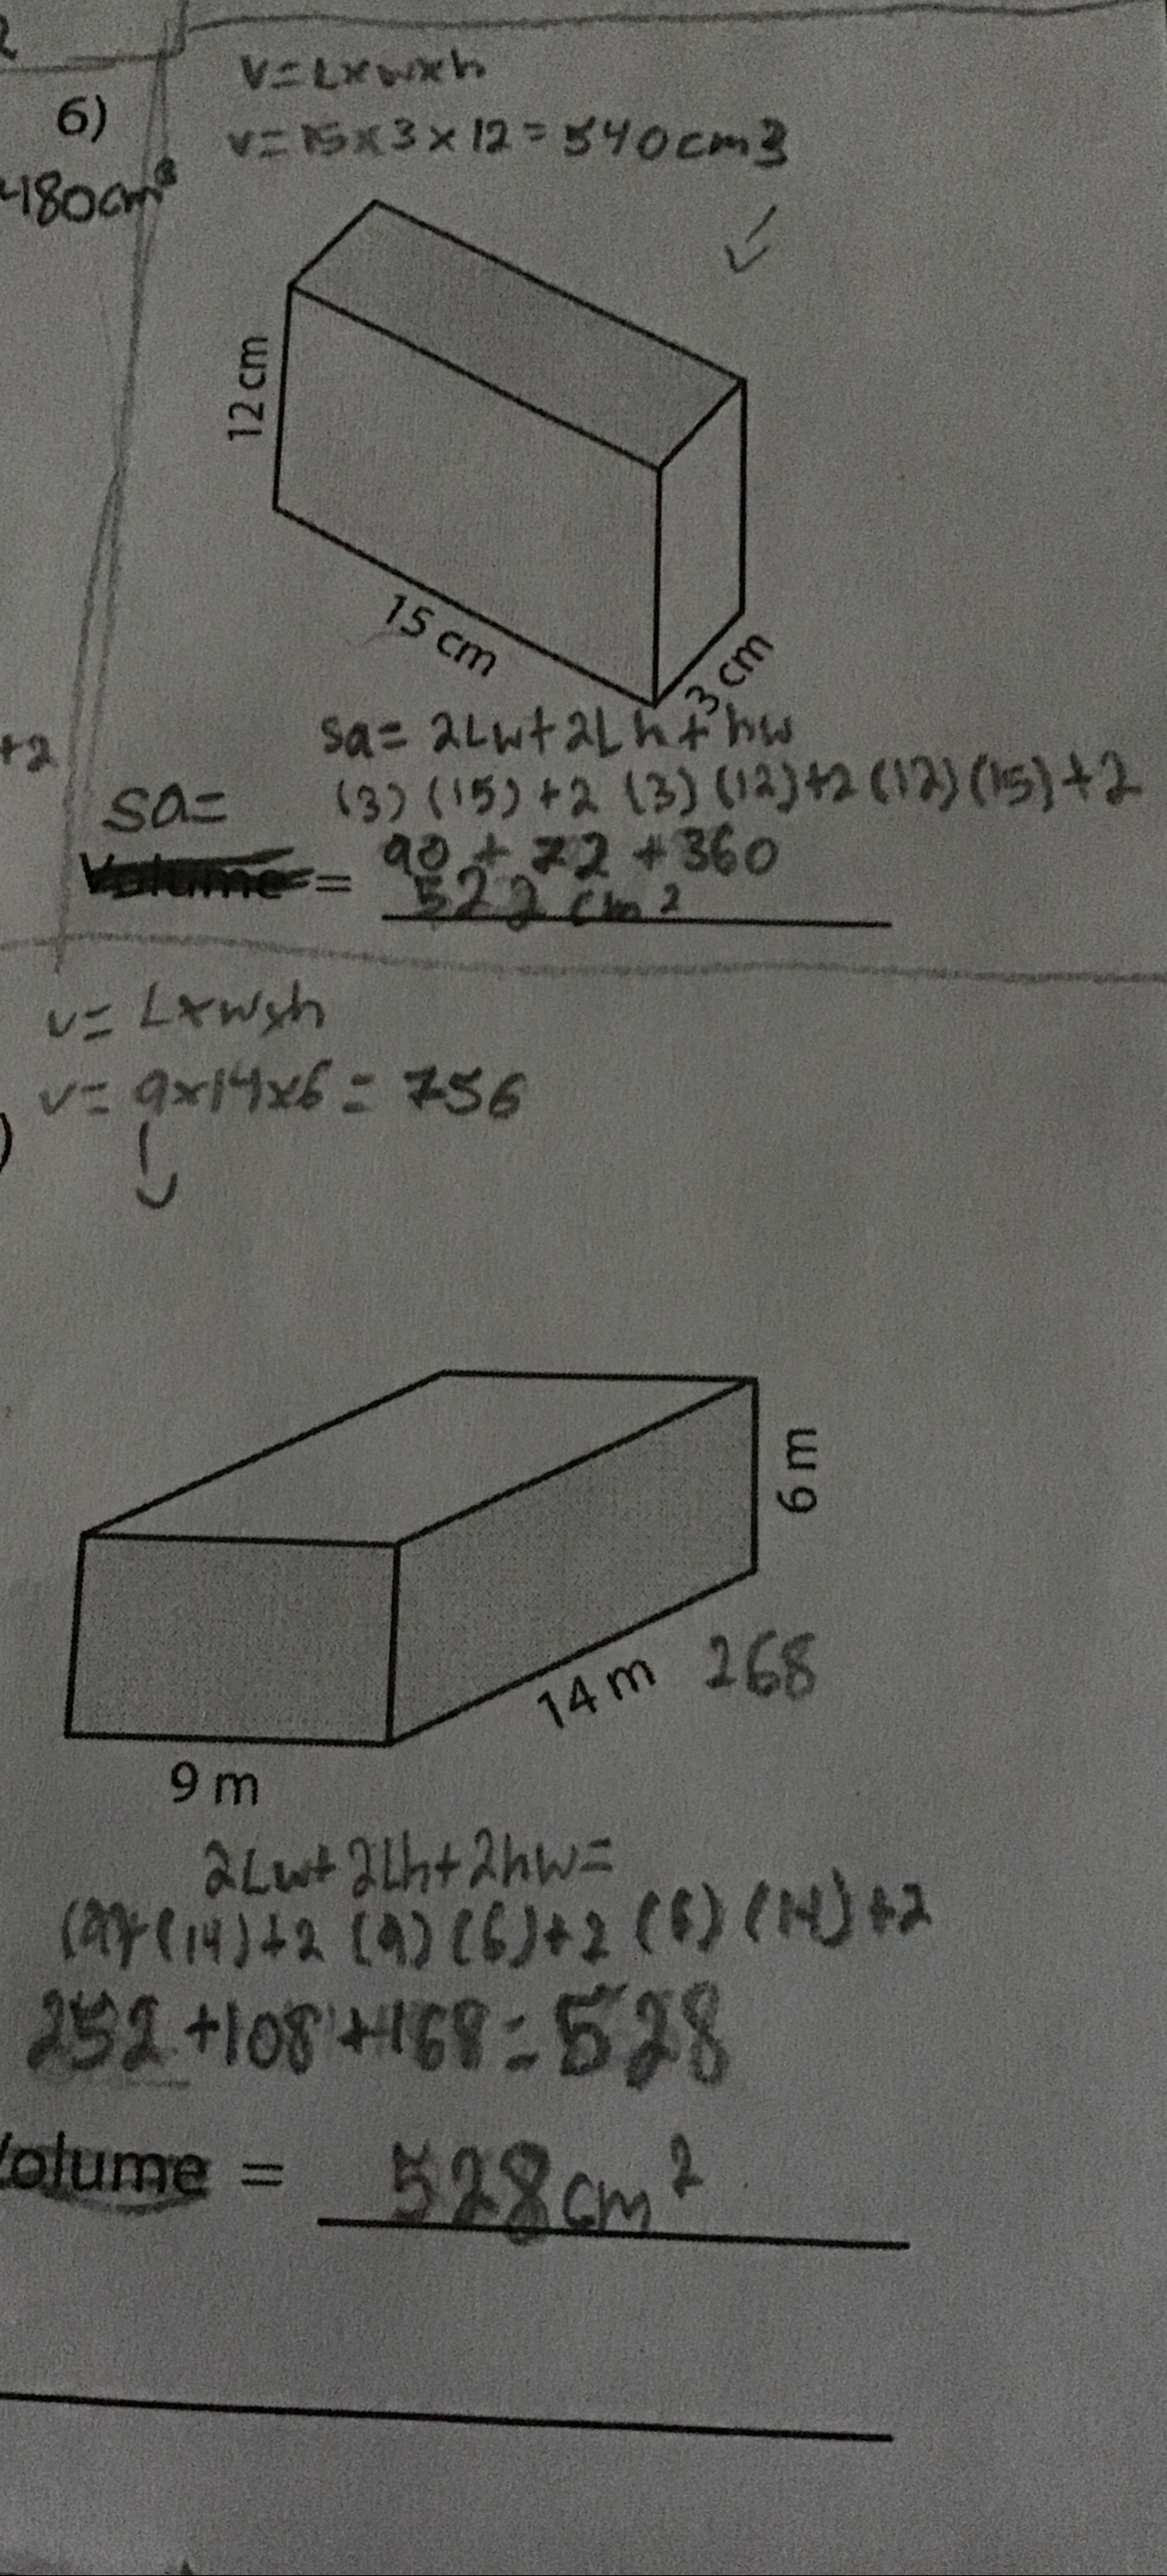 6)
V=L×w×h
v=15×3×12=540cm3
-180cm³
12 cm
15 cm
3 cm
+2
sa= 2Lw+2Lh+hw
sa= (3)(15)+2 (3)(12)+2(12)(15)+2
90+72+360
Volume = 522 cm²
v= L×w×h
v= 9×14×6= 756
)
6 m
14 m 268
9 m
2Lw+2Lh+2hw=
(9)(14)+2 (9)(6)+2 (6)(14)+2
252+108+168=528
Volume = 528cm²